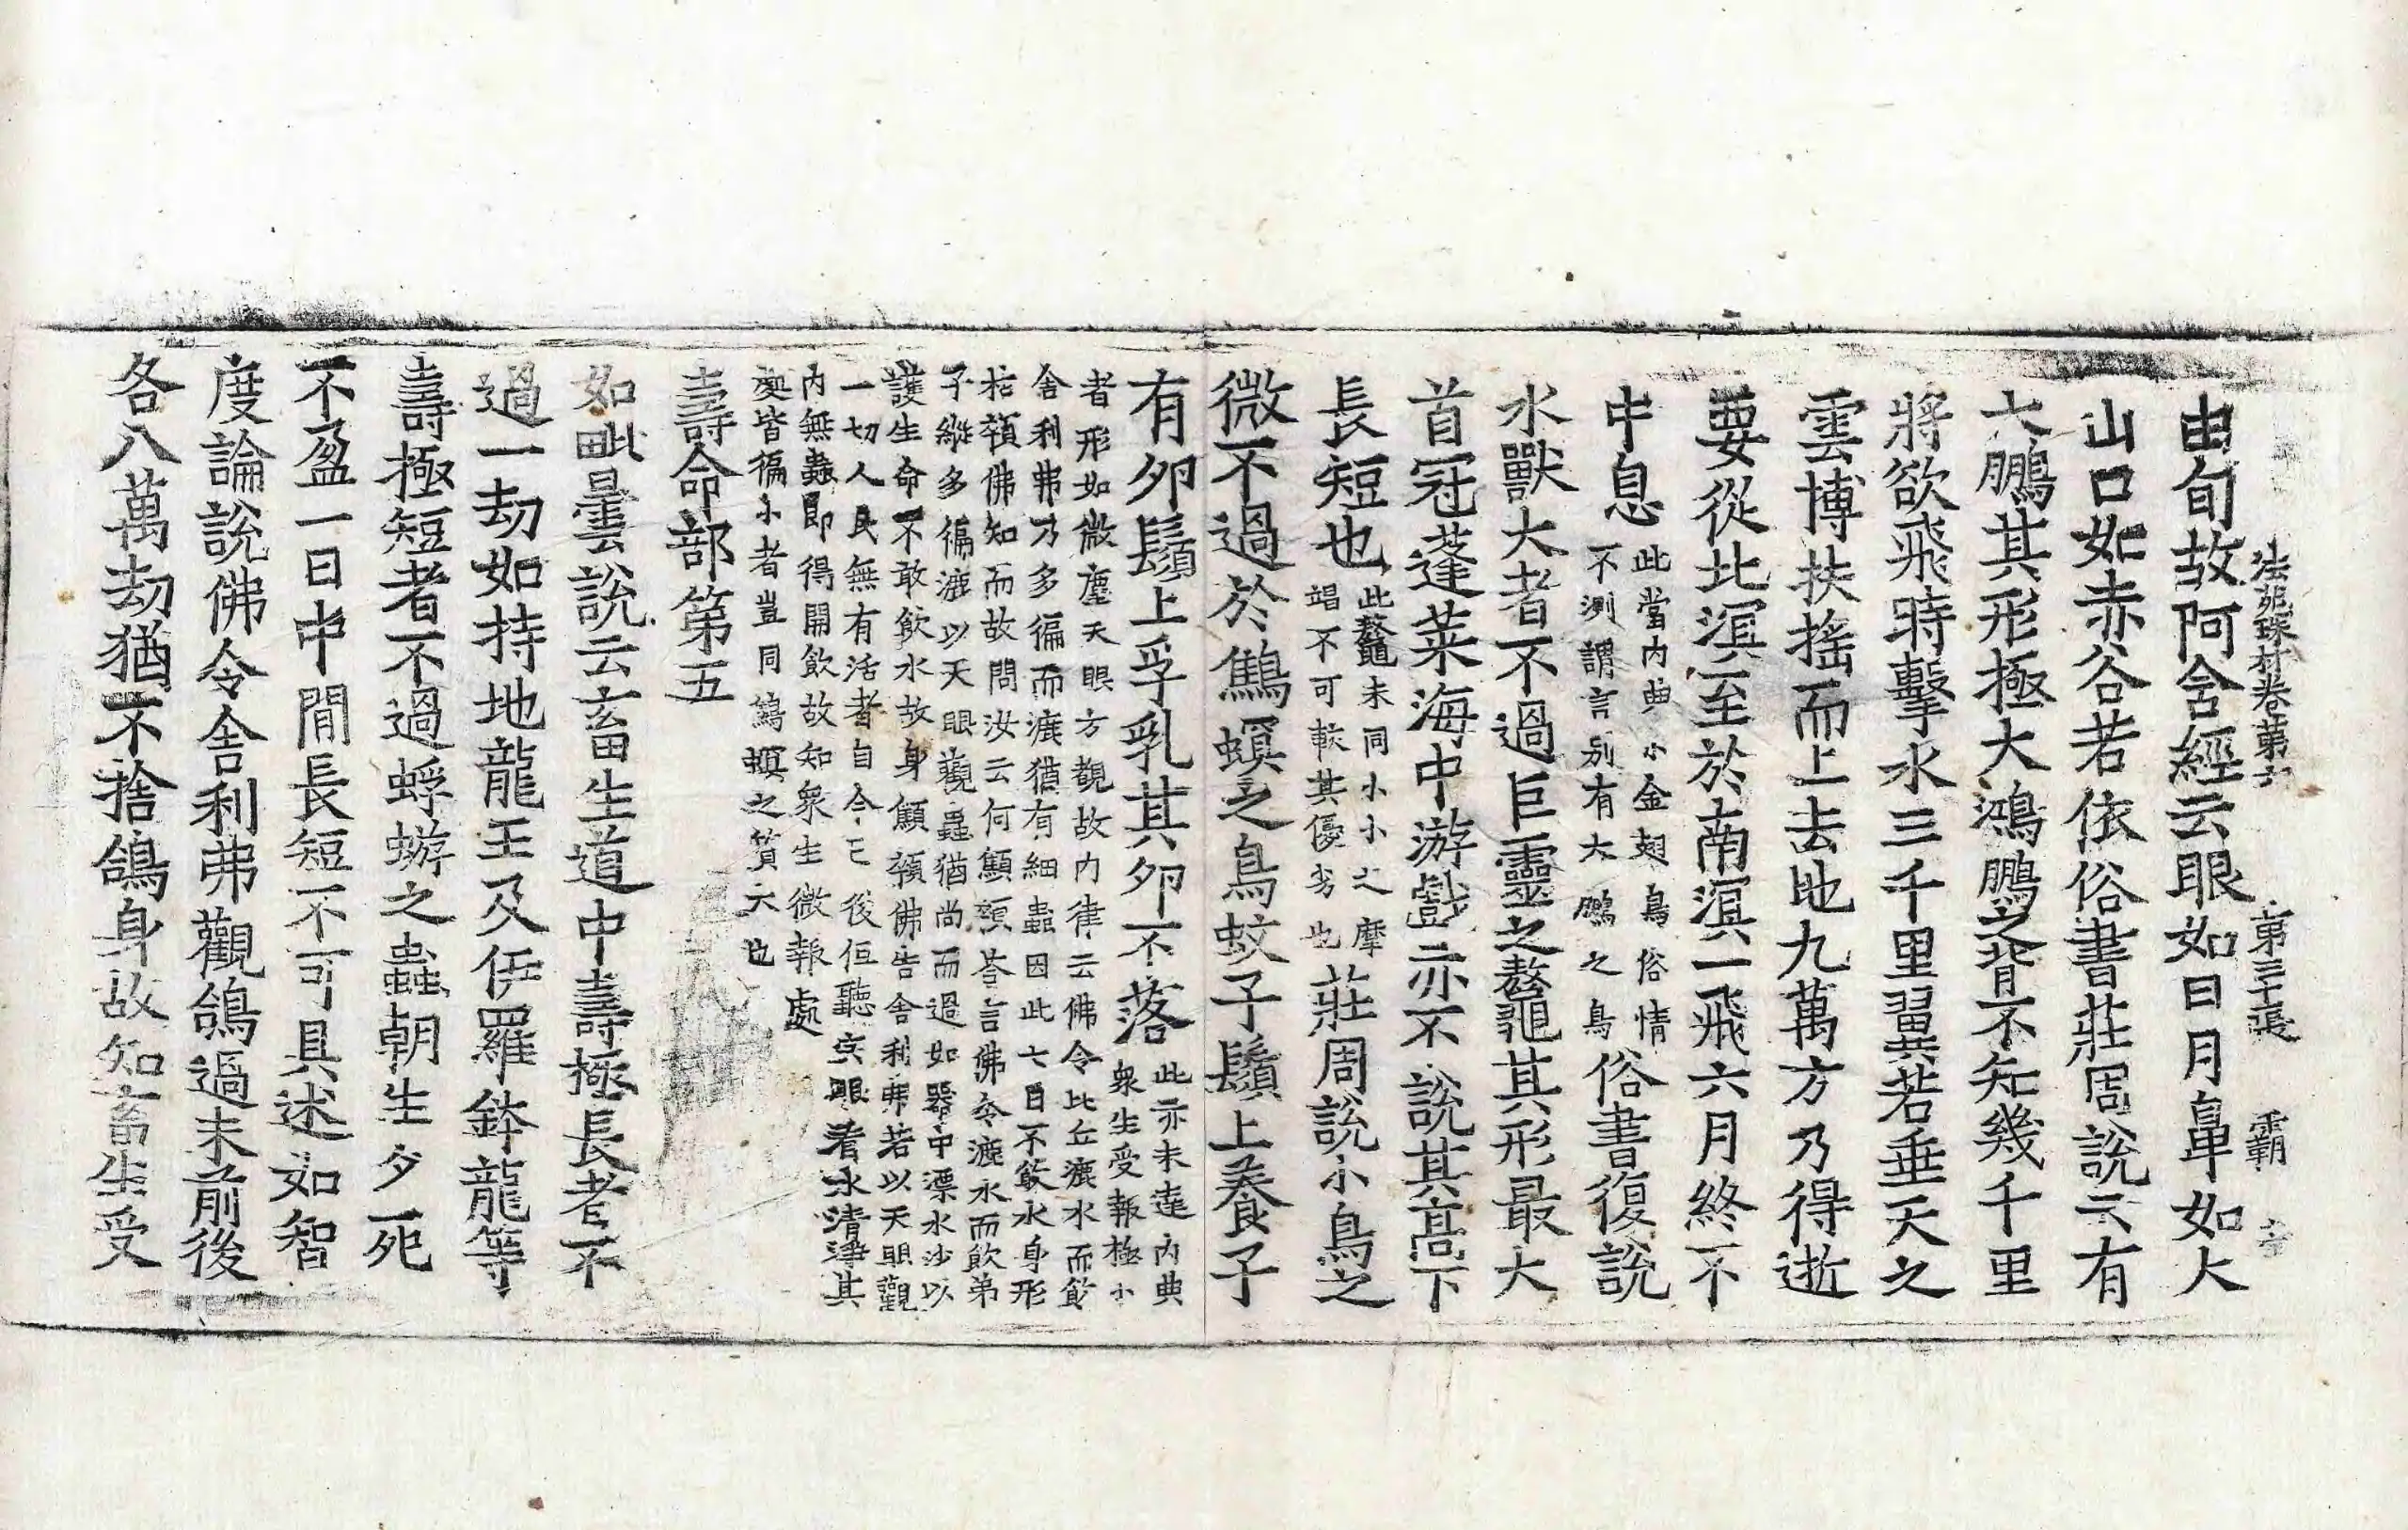 法苑珠林卷第六　第三十張　霸
由旬故阿含經云眼如日月鼻如大
山口如赤谷若依俗書莊周說云有
大鵬其形極大鴻鵬之背不知幾千里
將欲飛時擊水三千里翼若垂天之
雲博扶搖而上去地九萬方乃得逝
要從北溟至於南溟一飛六月終不
中息此當內典小金翅鳥俗情
不測謂言別有大鵬之鳥俗書復說
水獸大者不過巨靈之鼇龜其形最大
首冠蓬萊海中游戲亦不說其高下
長短也此鼇龜未同小小之摩
竭不可較其優劣也莊周說小鳥之
微不過於鷦螟之鳥蚊子鬚上養子
有卵鬚上孚乳其卵不落此亦未達內典
衆生受報極小
者形如微塵天眼方覩故內律云佛令比丘漉水而飮
舍利弗乃多徧而漉猶有細蟲因此七日不飮水身形
枯顇佛知而故問汝云何顦顇荅言佛令漉水而飮弟
子縱多徧漉以天眼觀蟲猶尚而過如器中漂水沙以
護生命不敢飮水故身顦顇佛告舍利弗若以天眼觀
一切人民無有活者自今已後但聽宍眼看水清淨其
內無蟲即得開飮故知衆生微報處
處皆徧小者豈同鷦螟之質大也
壽命部第五
如毗曇說云畜生道中壽極長者不
過一劫如持地龍王及伊羅鉢龍等
壽極短者不過蜉蝣之蟲朝生夕死
不盈一日中閒長短不可具述如智
度論說佛令舍利弗觀鴿過未前後
各八萬劫猶不捨鴿身故知畜生受